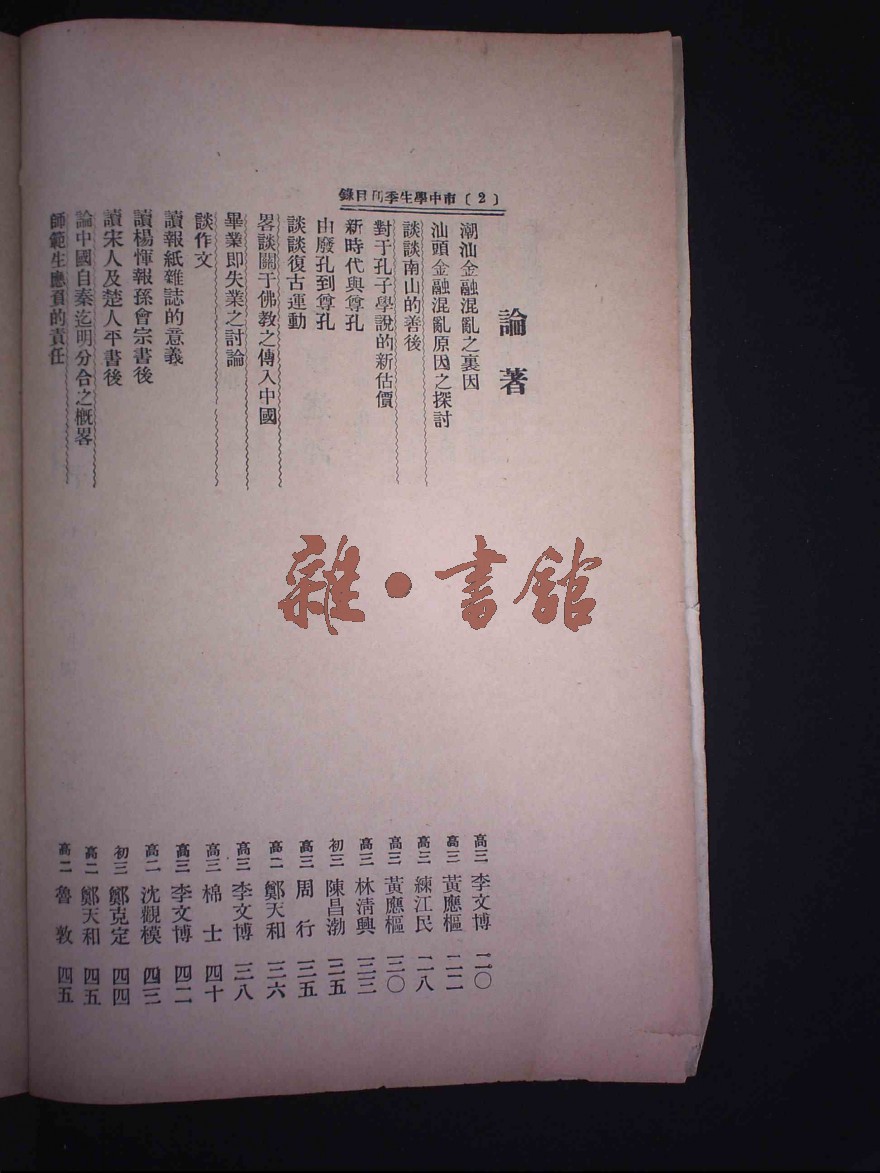 〔2〕市中學生季刊目錄
論著
潮汕金融混亂之裏因 高三 李文博 二〇
汕頭金融混亂原因之探討 高三 黃應樞 二二
談談南山的善後 高三 練江民 二八
對于孔子學說的新估價 高三 黃應樞 三〇
新時代與尊孔 高三 林清興 三三
由廢孔到尊孔 初三 陳昌渤 三五
談談復古運動 高三 周行 三五
畧談關于佛教之傳入中國 高二 鄭天和 三六
畢業即失業之討論 高三 李文博 三八
談作文 高三 棉士 四十
讀報紙雜誌的意義 高三 李文博 四二
讀楊惲報孫會宗書後 高二 沈觀模 四三
讀宋人及楚人平書後 初三 鄭克定 四四
論中國自秦迄明分合之概畧 高二 鄭天和 四五
師範生應負的責任 高二 魯敦 四五
雜·書館